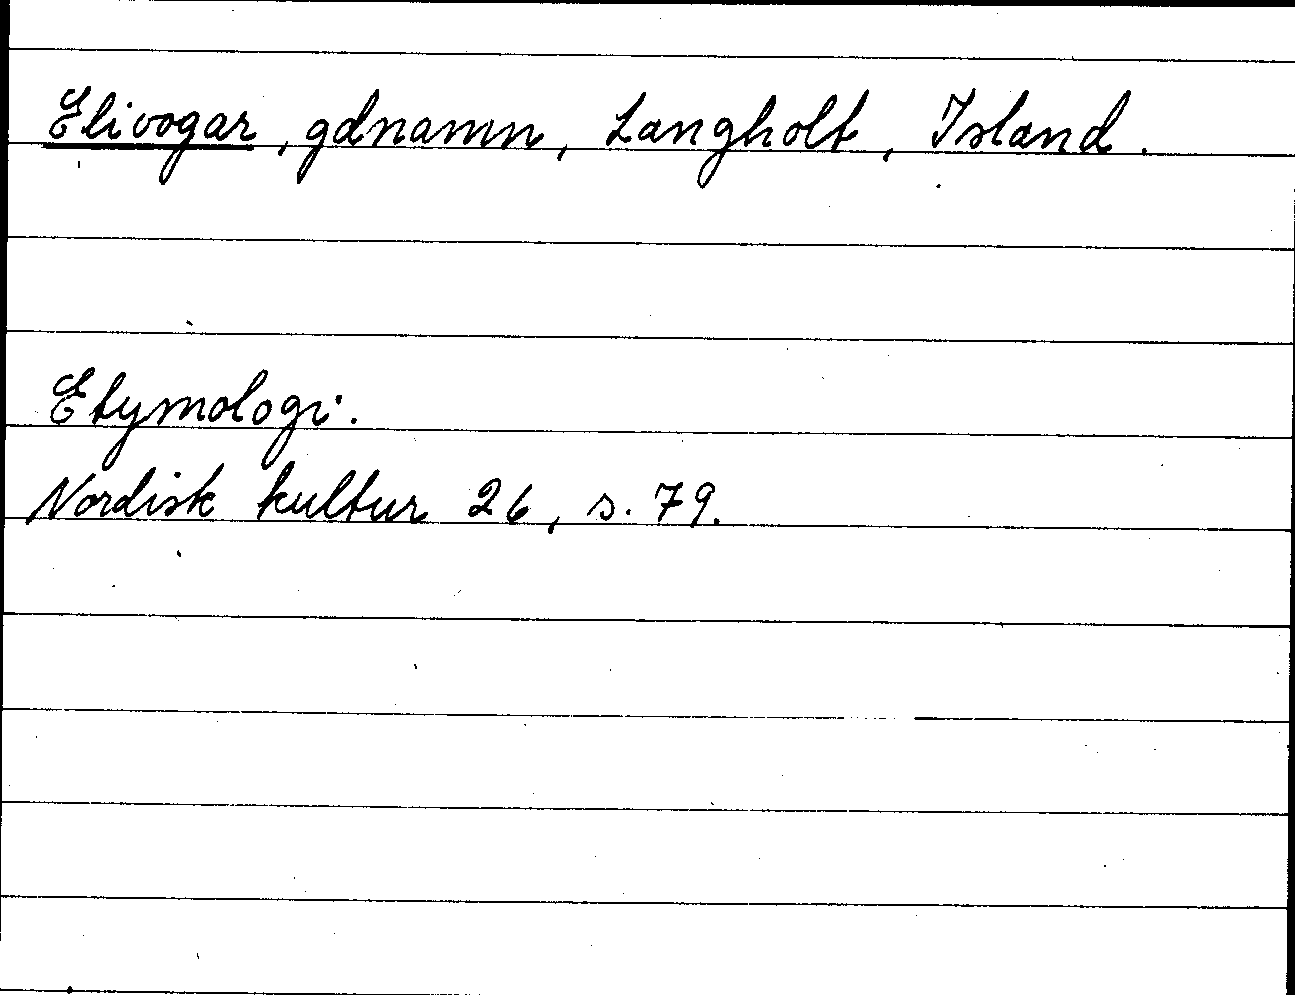 Elivogar, gdnamn, Langholt, Island.
Etymologi.
Nordisk kultur 26, s. 79.